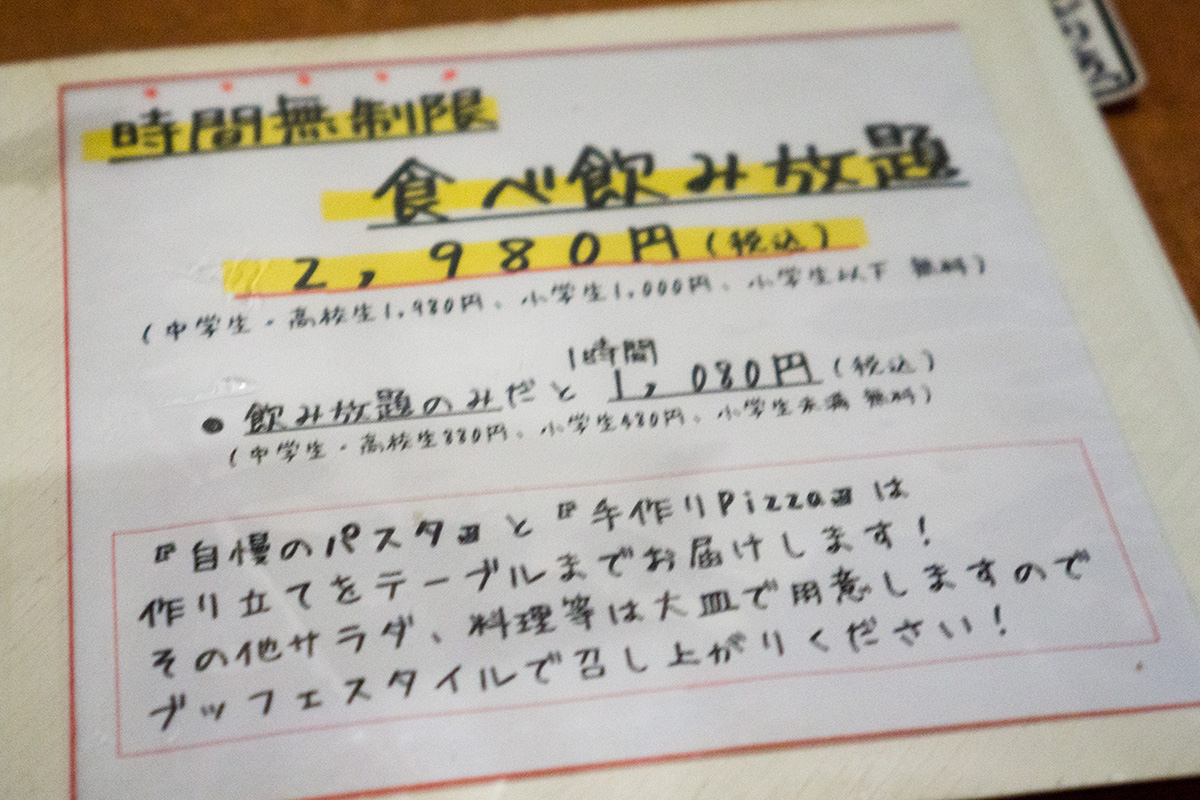 時間無制限
食べ飲み放題
2,980円(税込)
(中学生・高校生1,980円、小学生1,000円、小学生以下 無料)
1時間
●飲み放題のみだと 1,080円(税込)
(中学生・高校生880円、小学生480円、小学生未満 無料)
『自慢のパスタ』と『手作りPizza』は
作り立てをテーブルまでお届けします!
その他サラダ、料理等は大皿で用意しますので
ブッフェスタイルで召し上がりください!